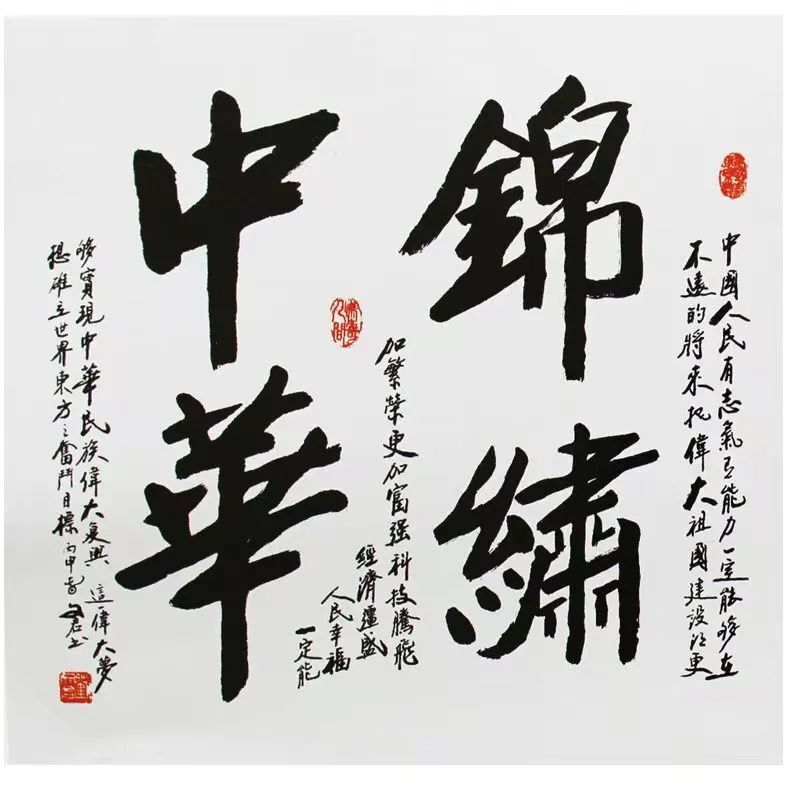 錦繡
中華
中國人民有志氣有能力一定能够在
不遠的將來把偉大祖國建設得更
加繁榮更加富强科技騰飛
經濟强盛
人民幸福
一定能
够實現中華民族偉大復興這一偉大夢
想確立世界東方之奮鬥目標丙申